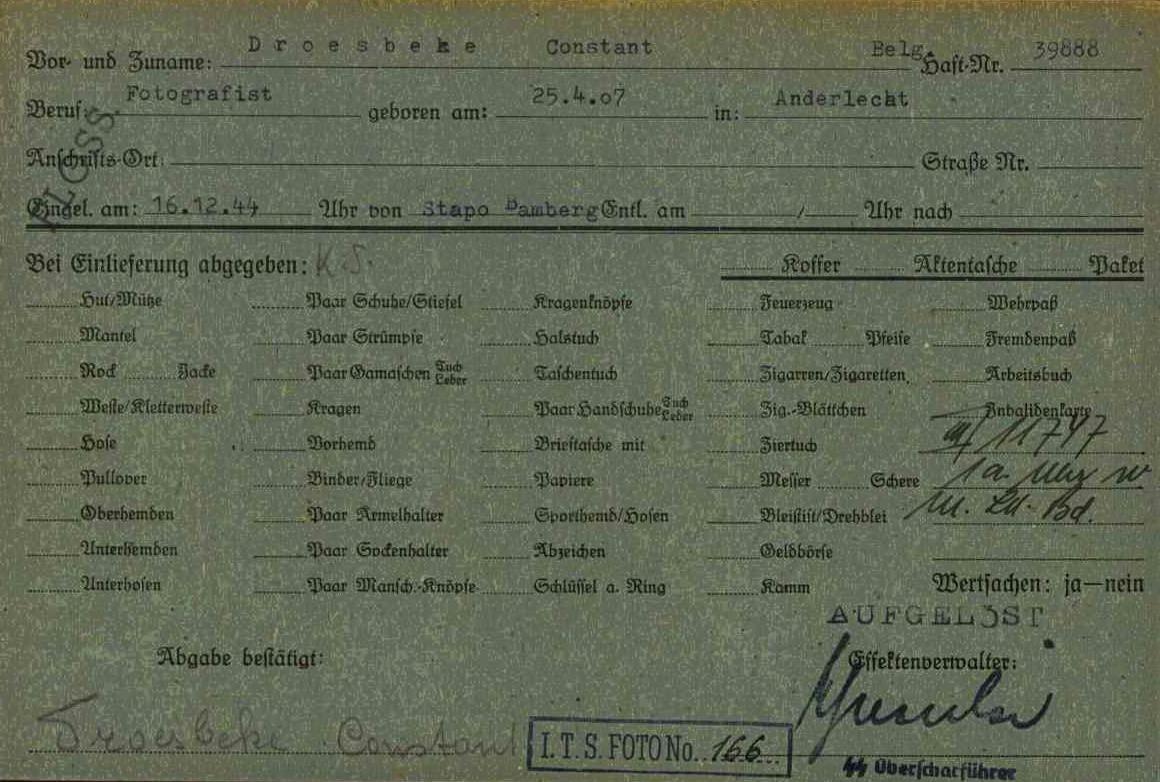 Vor- und Zuname: Droesbeke Constant Belg. Haft-Nr. 39888
Beruf: Fotografist geboren am: 25.4.07 in: Anderlecht
Anschrifts-Ort: Straße Nr.
Eingel. am: 16.12.44 Uhr von Stapo Bamberg Entl. am / Uhr nach
Bei Einlieferung abgegeben: K.S. Koffer Aktentasche Paket
Hut/Mütze Paar Schuhe/Stiefel Kragenknöpfe Feuerzeug Wehrpaß
Mantel Paar Strümpfe Halstuch Tabak Pfeife Fremdenpaß
Rock Jacke Paar Gamaschen Tuch Leder Taschentuch Zigarren/Zigaretten Arbeitsbuch
Weste/Kletterweste Kragen Paar Handschuhe Tuch Leder Zig.-Blättchen Invalidenkarte
Hose Vorhemd Brieftasche mit Ziertuch 11747
Pullover Binder/Fliege Papiere Messer Schere
Oberhemden Paar Ärmelhalter Sporthemd/Hosen Bleistift/Drehblei
Unterhemden Paar Sockenhalter Abzeichen Geldbörse
Unterhosen Paar Mansch.-Knöpfe Schlüssel a. Ring Kamm Wertsachen: ja—nein
AUFGELÖST
Abgabe bestätigt: Effektenverwalter:
Droesbeke Constant
I.T.S. FOTO No. 166
SS Oberscharführer